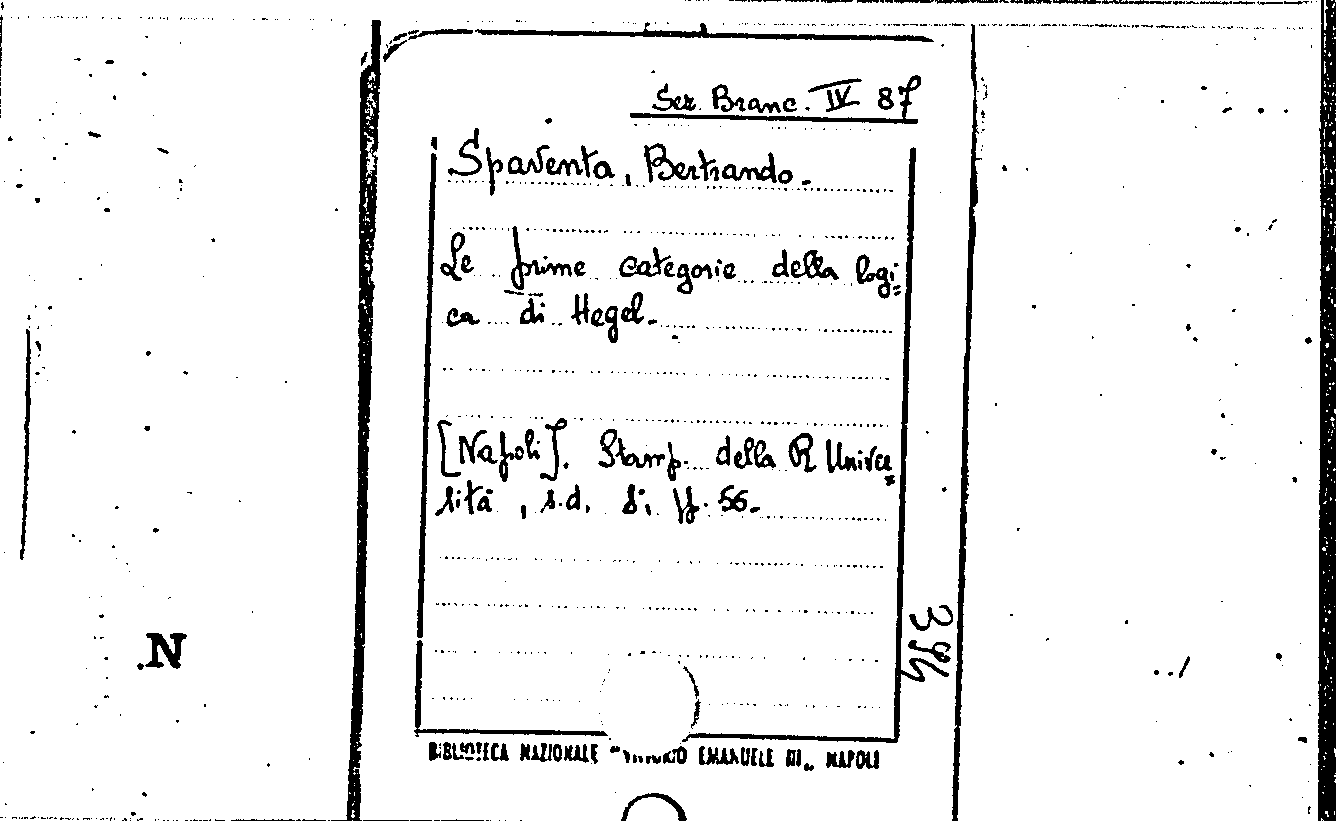 Sez. Branc. IV 87
Spaventa, Bertrando.
Le prime categorie della logi=
ca di Hegel.
[Napoli]. Stamp. della R Univer=
sità, s.d. 8. pp. 56.
394
.N
BIBLIOTECA NAZIONALE "VITTORIO EMANUELE III„ NAPOLI